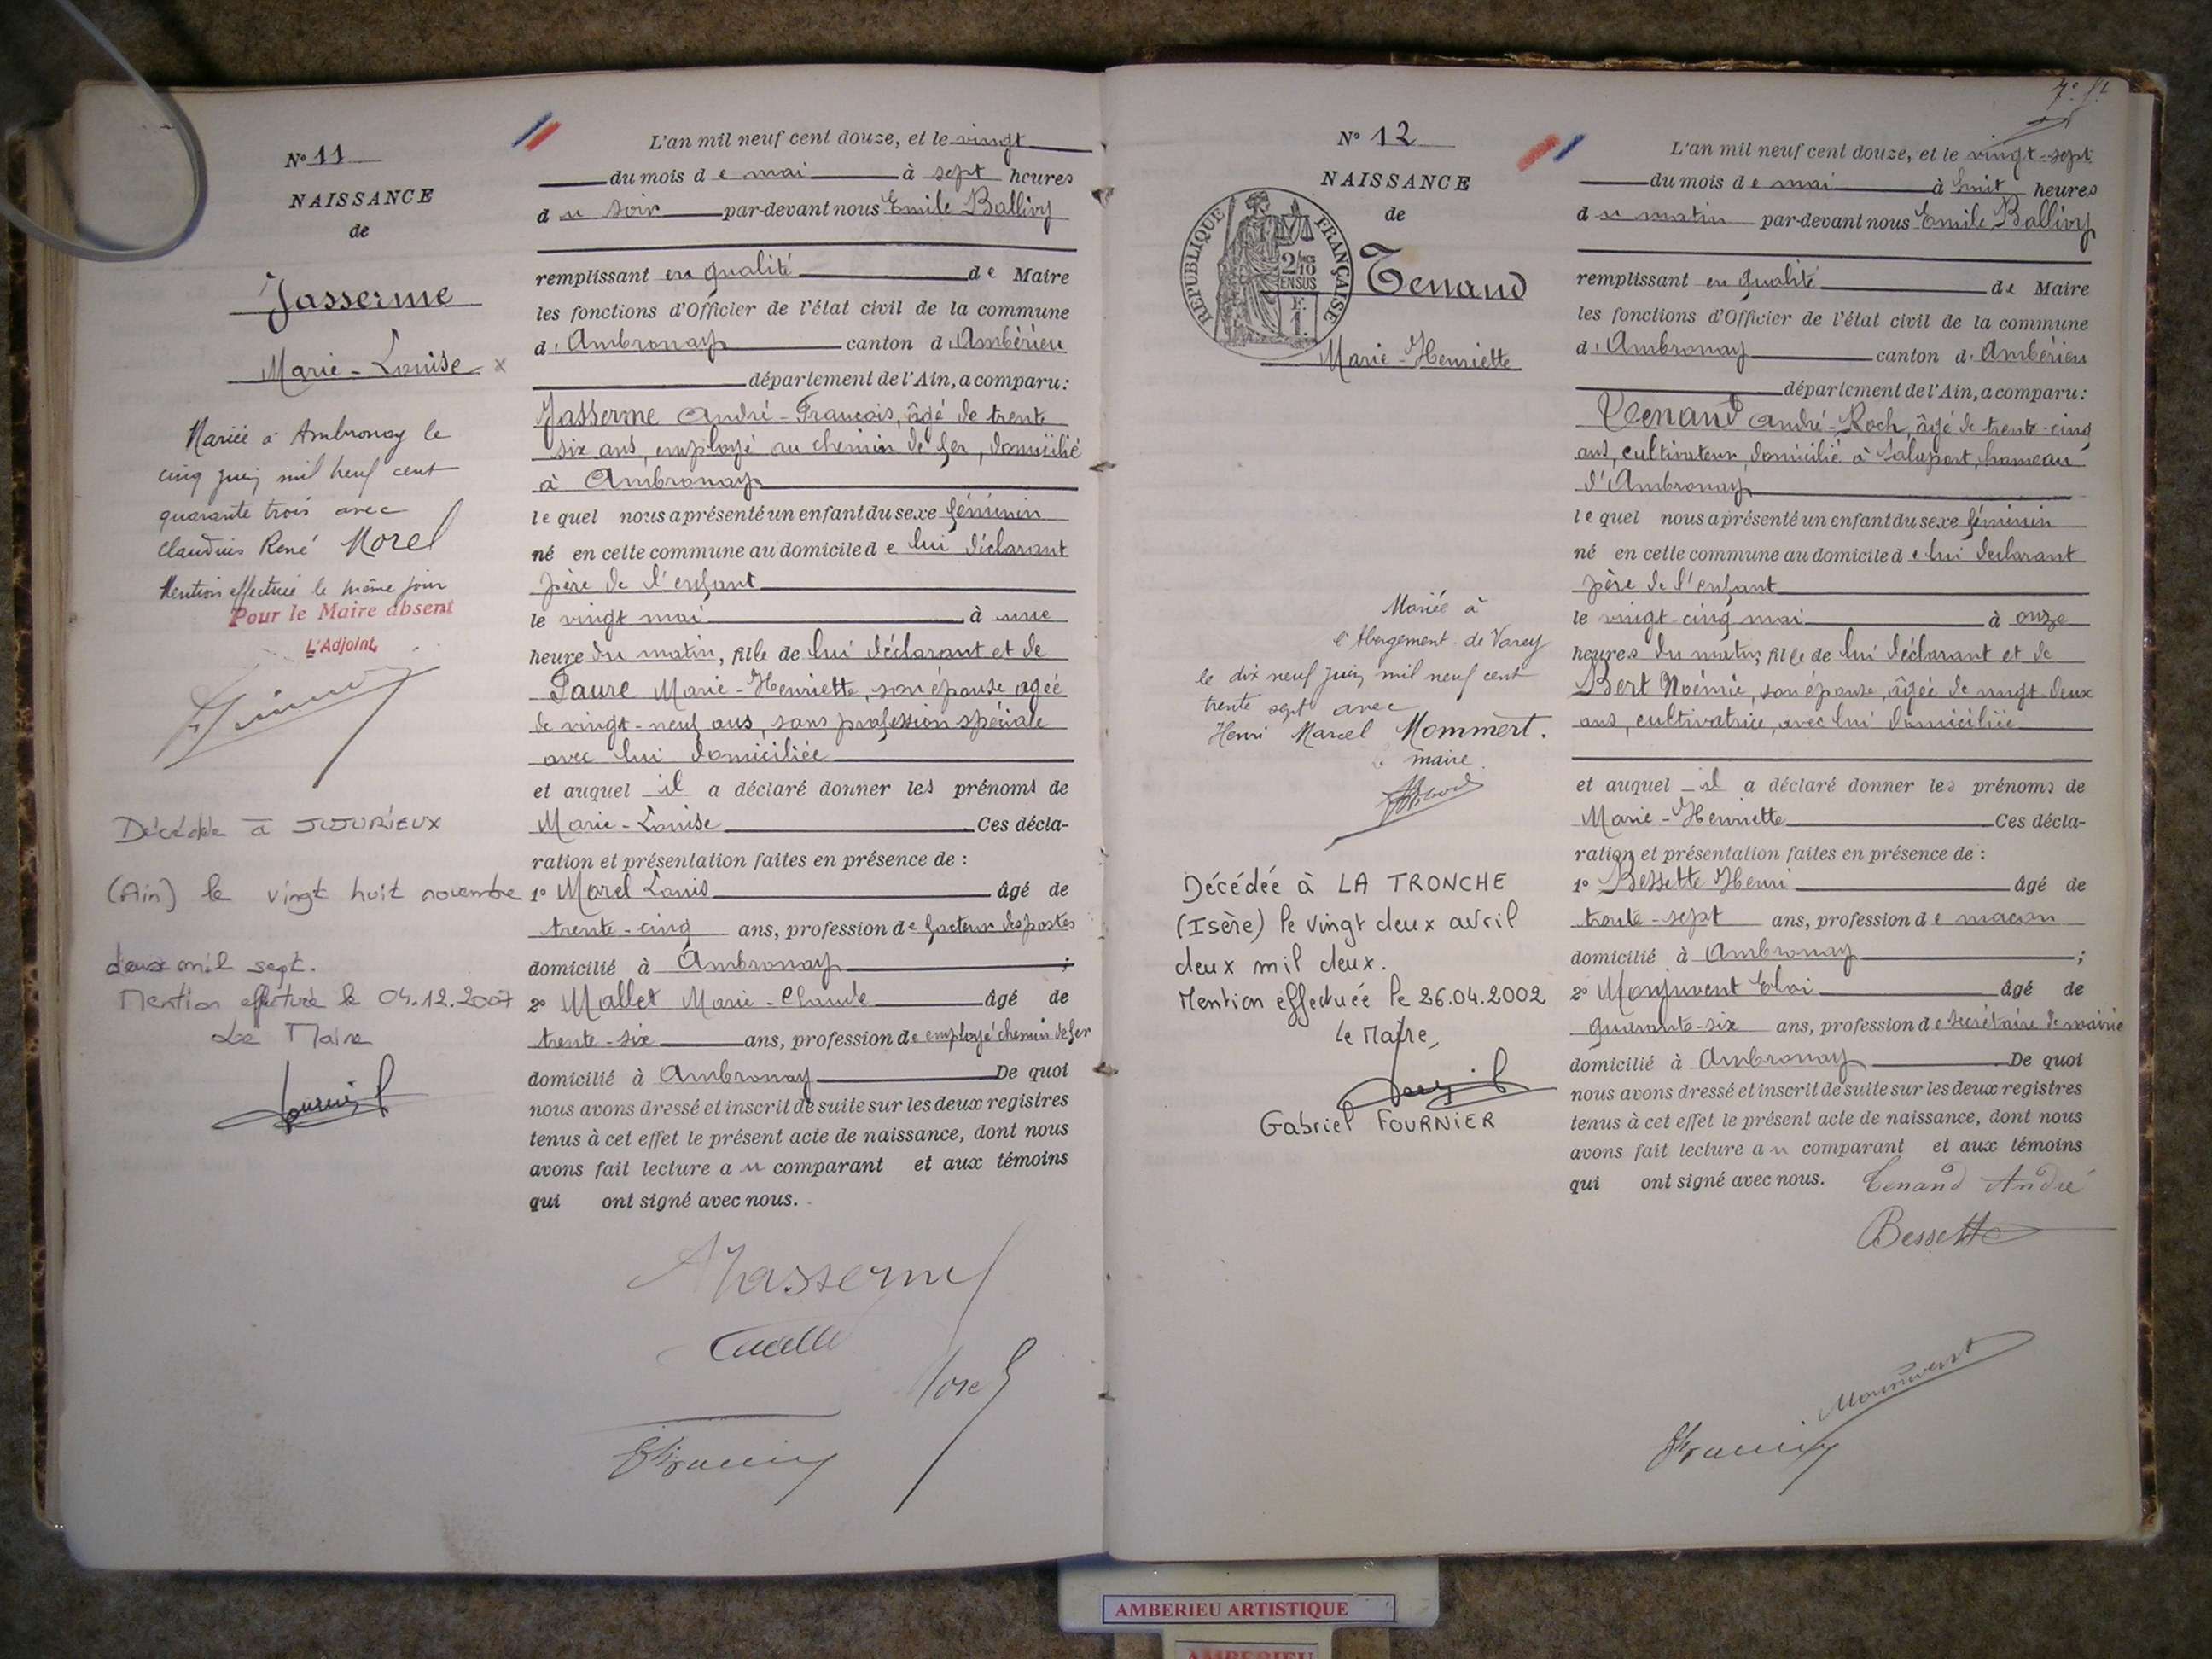 N° 11
NAISSANCE
de
Jasserme
Marie-Louise x
Mariée à Ambronay le
cinq juin mil neuf cent
quarante trois avec
Claudius René Morel
Mention effectuée le même jour
Pour le Maire absent
L'Adjoint,
Décédée à JUJURIEUX
(Ain) le vingt huit novembre
deux mil sept.
Mention effectuée le 04.12.2007
Le Maire
L'an mil neuf cent douze, et le vingt
du mois de mai à sept heures
du soir par-devant nous Emile Ballivy
remplissant en qualité de Maire
les fonctions d'Officier de l'état civil de la commune
d'Ambronay canton d'Ambérieu
département de l'Ain, a comparu:
Jasserme André-François, âgé de trente
six ans, employé au chemin de fer, domicilié
à Ambronay
lequel nous a présenté un enfant du sexe féminin
né en cette commune au domicile de lui déclarant
père de l'enfant
le vingt mai à une
heure du matin, fille de lui déclarant et de
Faure Marie-Henriette, son épouse, agée
de vingt-neuf ans, sans profession spéciale
avec lui domiciliée
et auquel il a déclaré donner les prénoms de
Marie-Louise Ces décla-
ration et présentation faites en présence de :
1° Morel Louis âgé de
trente-cinq ans, profession de facteur des postes
domicilié à Ambronay ;
2° Mallet Marie-Claude âgé de
trente-six ans, profession de employé chemin de fer
domicilié à Ambronay De quoi
nous avons dressé et inscrit de suite sur les deux registres
tenus à cet effet le présent acte de naissance, dont nous
avons fait lecture au comparant et aux témoins
qui ont signé avec nous.
Jasserme
Morel
N° 12
NAISSANCE
de
RÉPUBLIQUE FRANÇAISE
2/10
EN SUS
F.
1.
Tenand
Marie-Henriette
Mariée à
l'Abergement-de-Varey
le dix neuf juin mil neuf cent
trente sept avec
Henri Marcel Mommert.
le maire.
Décédée à LA TRONCHE
(Isère) le vingt deux avril
deux mil deux.
Mention effectuée le 26.04.2002
Le Maire,
Gabriel FOURNIER
L'an mil neuf cent douze, et le vingt-sept
du mois de mai à huit heures
du matin par-devant nous Emile Ballivy
remplissant en qualité de Maire
les fonctions d'Officier de l'état civil de la commune
d'Ambronay canton d'Ambérieu
département de l'Ain, a comparu:
Tenand André-Roch, âgé de trente-cinq
ans, cultivateur, domicilié à Salaport, hameau
d'Ambronay
lequel nous a présenté un enfant du sexe féminin
né en cette commune au domicile de lui déclarant
père de l'enfant
le vingt cinq mai à onze
heures du matin, fille de lui déclarant et de
Bert Noémie, son épouse, âgée de vingt deux
ans, cultivatrice, avec lui domiciliée
et auquel il a déclaré donner les prénoms de
Marie-Henriette Ces décla-
ration et présentation faites en présence de :
1° Bessette Henri âgé de
trente-sept ans, profession de maçon
domicilié à Ambronay ;
2° Monjuvent Eloi âgé de
quarante-six ans, profession de secrétaire de mairie
domicilié à Ambronay De quoi
nous avons dressé et inscrit de suite sur les deux registres
tenus à cet effet le présent acte de naissance, dont nous
avons fait lecture au comparant et aux témoins
qui ont signé avec nous. Tenand André
Bessette
Monjuvent
AMBERIEU ARTISTIQUE
AMBERIEU